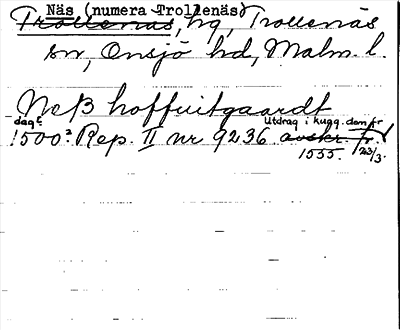 Näs (numera Trollenäs)
Trollenäs, hg, Trollenäs
sn, Onsjö hd, Malm. l.
Neß hoffuitgaardt
dagb. Utdrag i kugg. dom fr
1500? Rep. II nr 9236. avskr. fr.
1555. 23/3.